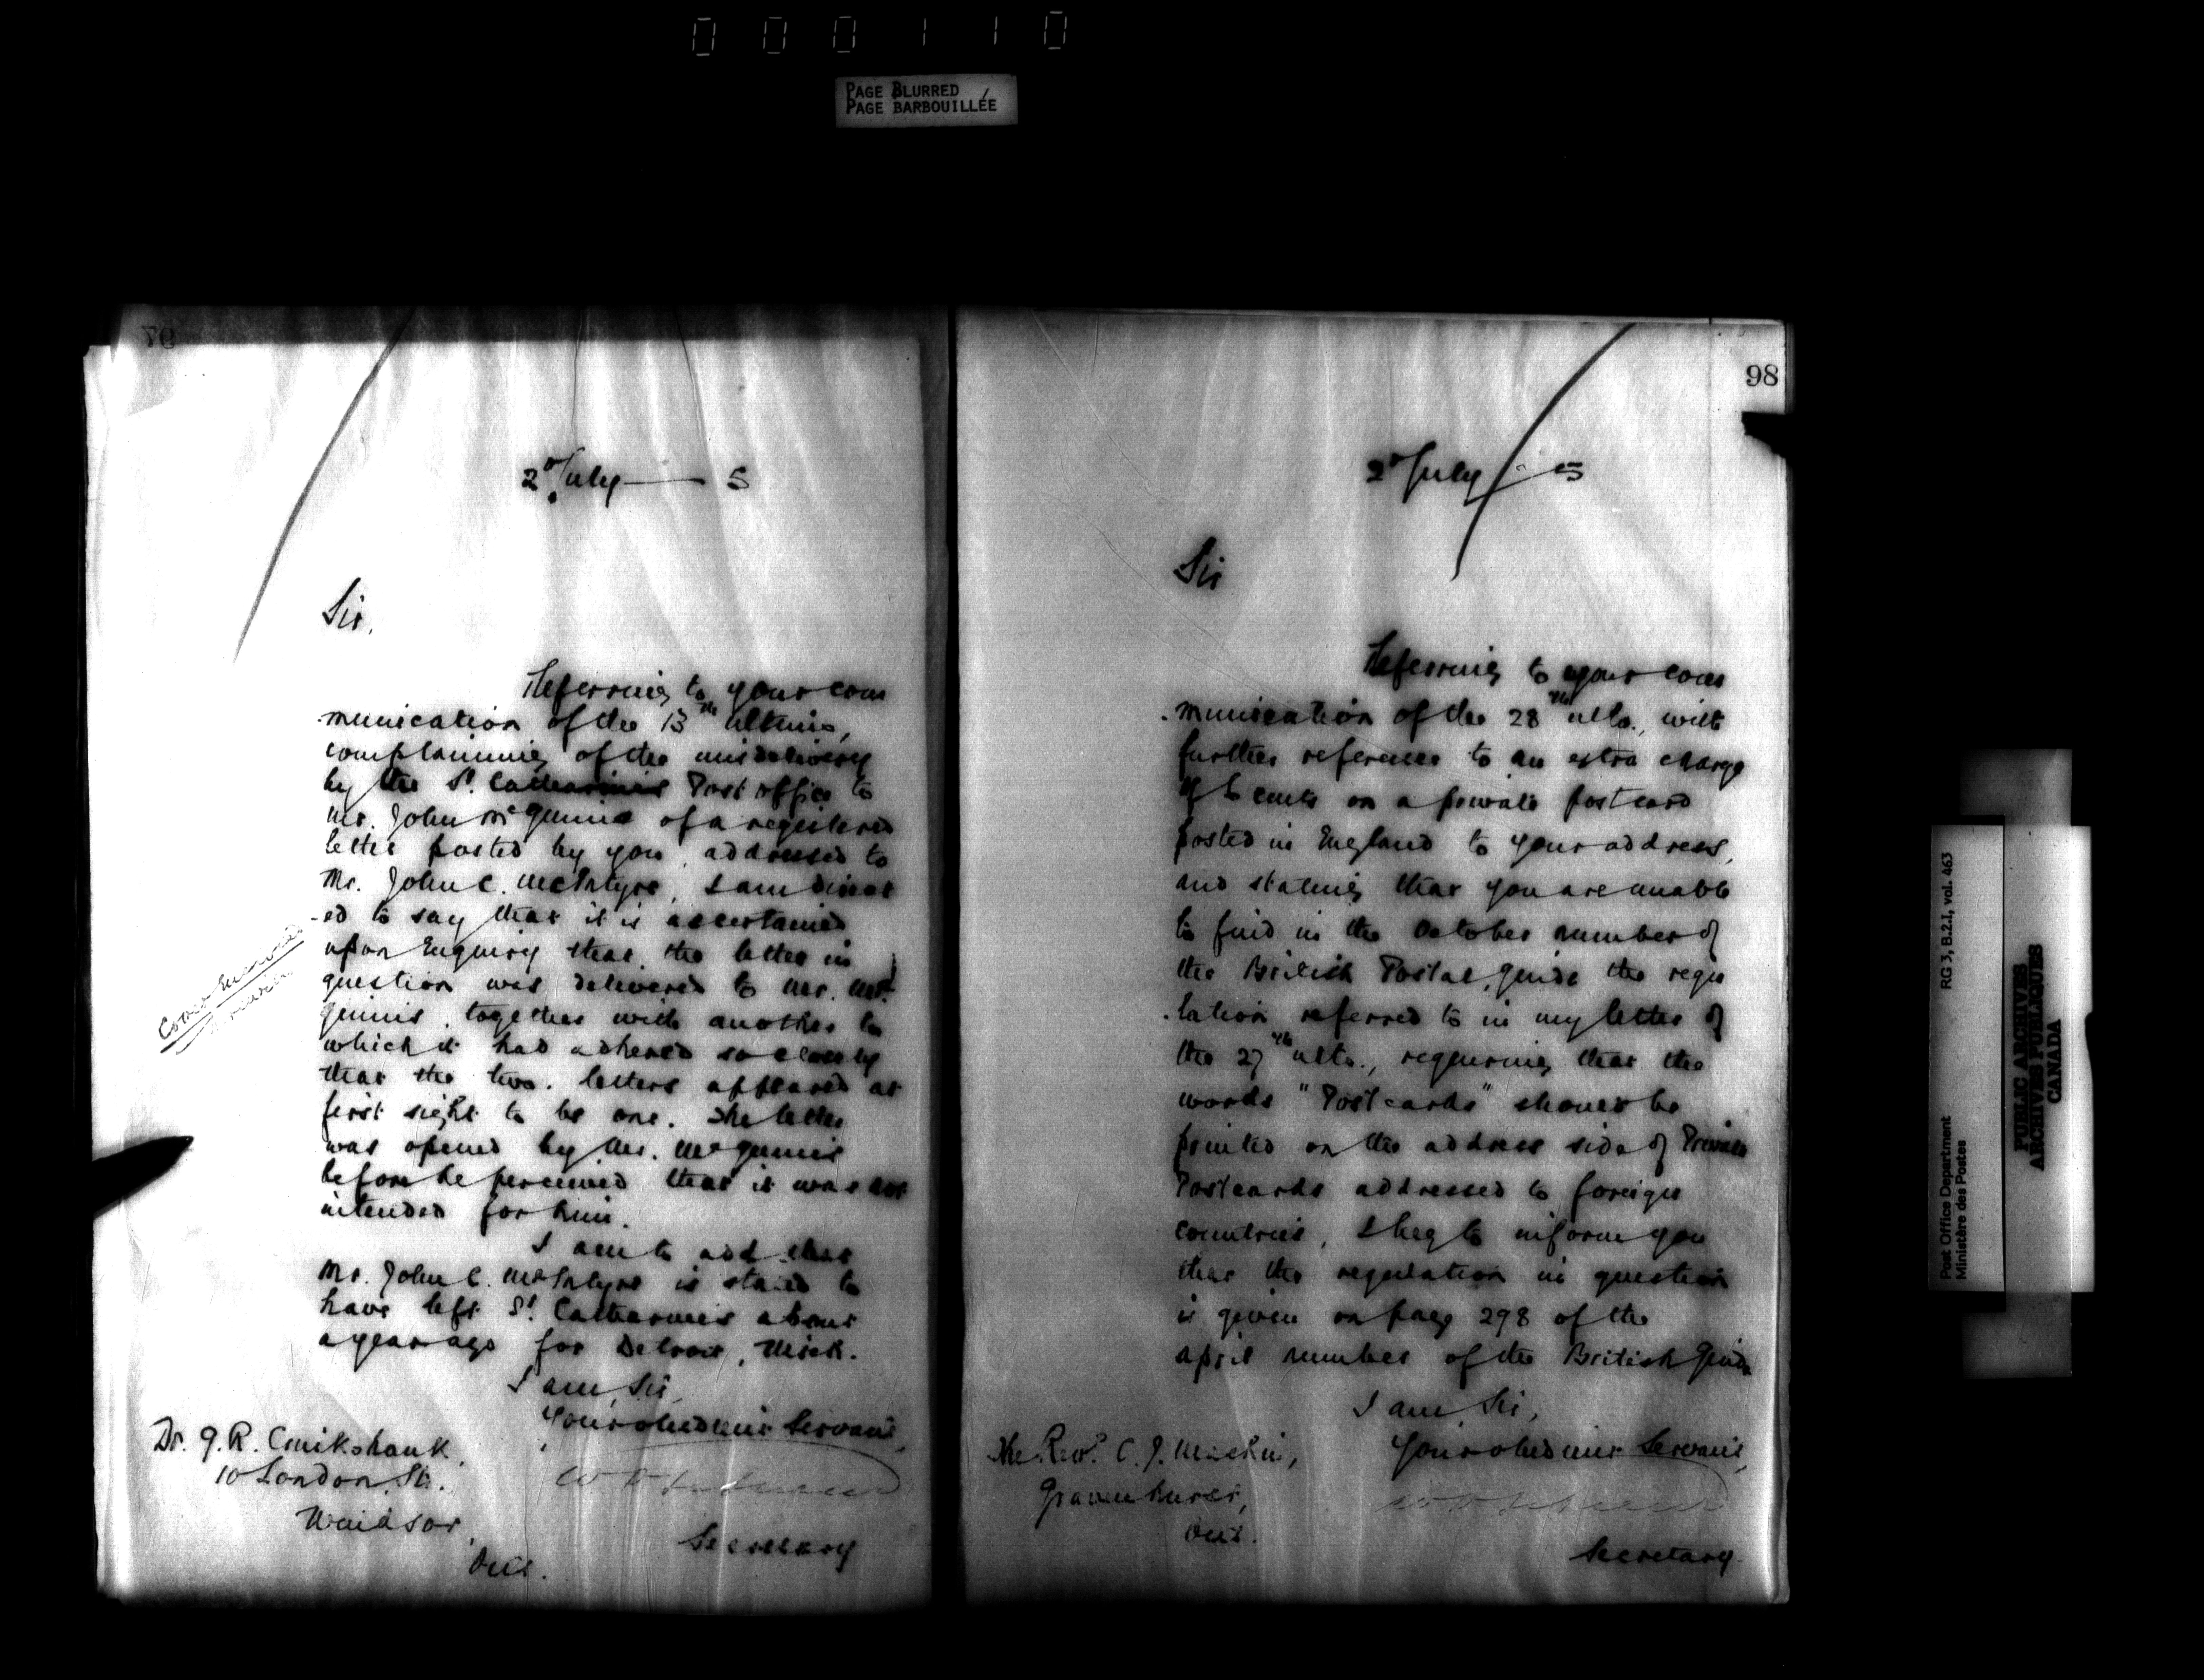 000110
PAGE BLURRED
PAGE BARBOUILLÉE
2d July — 5
Sir,
Referring to your com
-munication of the 13th ultimo,
complaining of the misdelivery
by the St. Catharines Post office to
Mr. John McGinnis of a registered
letter posted by you, addressed to
Mr. John C. McIntyre, I am direct
-ed to say that it is ascertained
upon Enquiry that the letter in
question was delivered to Mr. Mc
Ginnis, together with another to
which it had adhered so closely
that the two letters appeared at
first sight to be one. The letter
was opened by Mr. McGinnis
before he perceived that it was not
intended for him.
I am to add that
Mr. John C. McIntyre is stated to
have left St. Catharines about
a year ago for Detroit, Mich.
I am, Sir,
Your obedient Servant,
Secretary
Dr. G. R. Cruikshank,
10 London St.
Windsor,
Ont.
98
2d July — 5
Sir
Referring to your com
-munication of the 28th ulto., with
further reference to an extra charge
of 6 cents on a private postcard
posted in England to your address,
and stating that you are unable
to find in the October number of
the British Postal Guide the regu
-lation referred to in my letter of
the 27th ulto., requiring that the
words "Postcards" should be
printed on the address side of Private
Postcards addressed to foreign
countries, I beg to inform you
that the regulation in question
is given on page 298 of the
April number of the British Guide
I am, Sir,
Your obedient Servant,
Secretary.
The Revd. C. J. Machin,
Gravenhurst,
Ont.
Post Office Department
Ministère des Postes
RG 3, B.2.1, vol. 463
PUBLIC ARCHIVES
ARCHIVES PUBLIQUES
CANADA